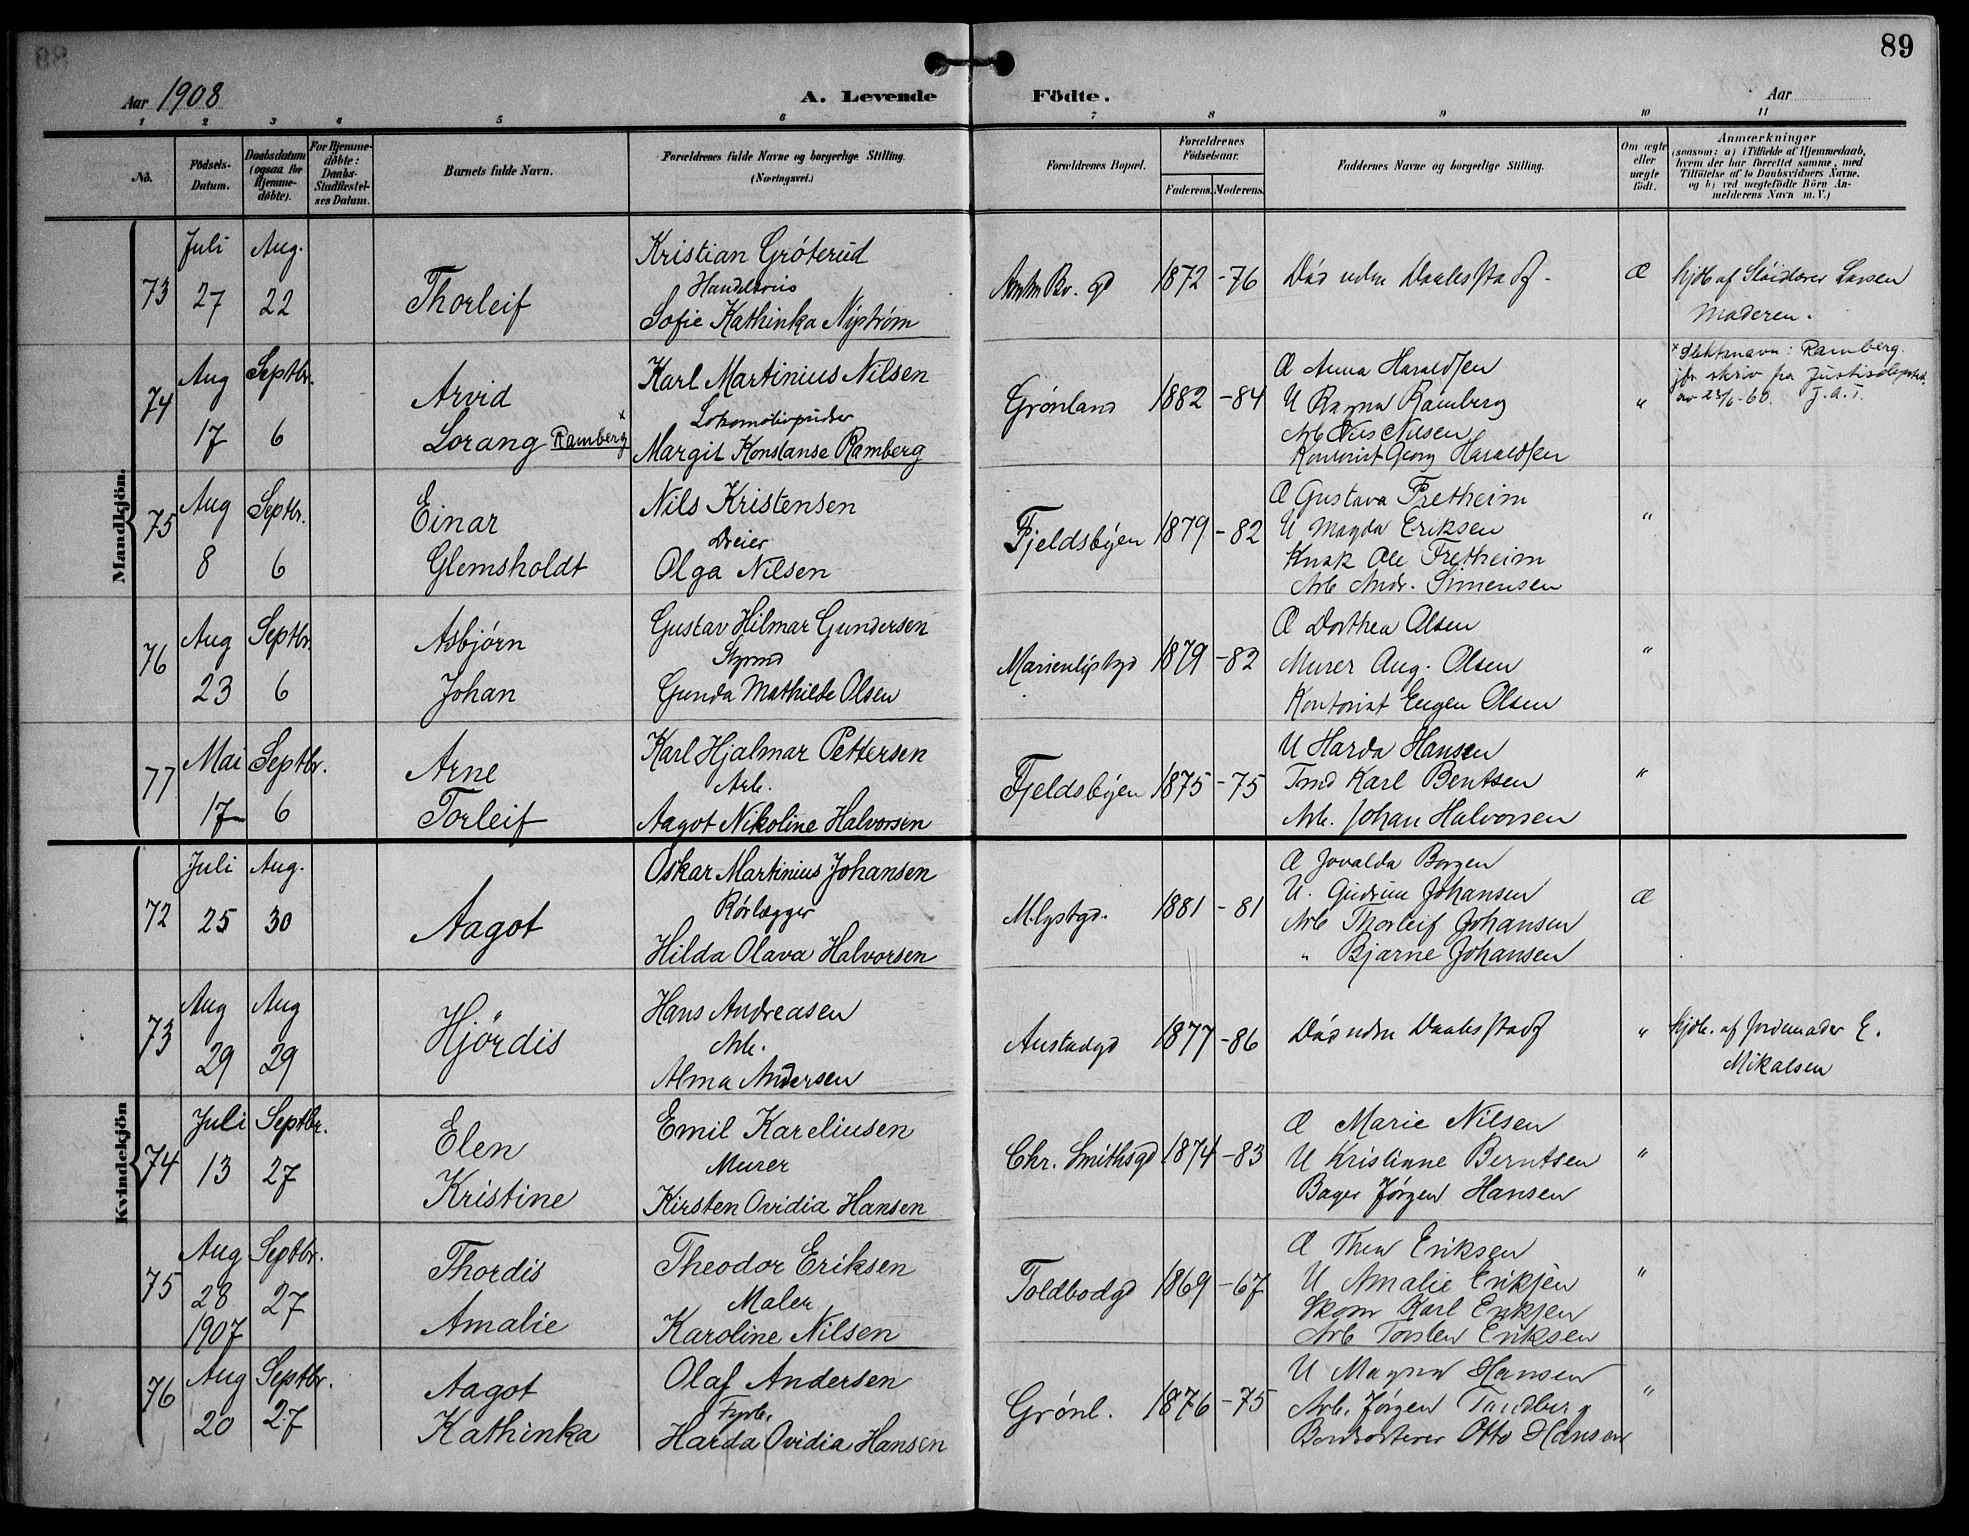 89
Aar 1908
A. Levende
Födte.
Aar
1 2 3 4 5 6 7 8 9 10 11
No.
Födsels-Datum.
Daabsdatum (ogsaa for Hjemme-döbte).
For Hjemme-döbte: Daabs-Stadfæstel-ses Datum.
Barnets fulde Navn.
Forældrenes fulde Navne og borgerlige Stilling. (Næringsvei.)
Forældrenes Bopæl.
Forældrenes Födselsaar.
Faderens. Moderens.
Faddernes Navne og borgerlige Stilling.
Om ægte eller uægte födt.
Anmærkninger
(saasom: a) i Tilfælde af Hjemmedaab, hvem der har forrettet samme, med Tilföielse af to Daabsvidners Navne, og b) ved uægtefödte Börn An-melderens Navn m. V.)
Mandkjön.
73 Juli 27 Aug. 22
Thorleif
Kristian Gröterud
Sofie Kathinka Nyström
1872 -76
Död uden Daabsstadf.
Æ
hjdb af Larsen
Moderen.
74 Aug 17 Septbr. 6
Arvid
Lorang Ramberg x
Karl Martinius Nilsen
Lokomotivpudser
Margit Konstanse Ramberg
Grönland
1882 -84
Æ Anna Haraldsen
U Ragna Ramberg
Arb Nils Nilsen
Kontorist Georg Haraldsen
"
x Slektsnavn: Ramberg.
jfr. skriv fra Justisdepartet.
av 23/6-60. J.a.T.
75 Aug 8 Septbr. 6
Einar
Glemsholdt
Nils Kristensen
Dreier
Olga Nilsen
Fjeldsbyen
1879 -82
Æ Gustava Fretheim
U Magda Eriksen
Kusk Ole Fretheim
Arb Andr. Simensen
"
76 Aug 23 Septbr. 6
Asbjørn
Johan
Gustav Hilmar Gundersen
Styrmd
Gunda Mathilde Olsen
Marienlystgd
1879 -82
Æ Dorthea Olsen
Murer Aug. Olsen
Kontorist Eugen Olsen
"
77 Mai 17 Septbr. 6
Arne
Torleif
Karl Hjalmar Pettersen
Arb.
Aagot Nikoline Halvorsen
Fjeldsbyen
1875 -75
U Harda Hansen
Tmd Karl Bentsen
Arb. Johan Halvorsen
"
Kvindekjön
72 Juli 25 Aug. 30
Aagot
Oskar Martinius Johansen
Rörlægger
Hilda Olava Halvorsen
M.lystgd.
1881 -81
Æ Jovalda Borgen
U. Gudrun Johansen
Arb Thorleif Johansen
" Bjarne Johansen
Æ
73 Aug 29 Aug 29
Hjördis
Hans Andreasen
Arb.
Alma Andersen
Austadgd
1877 -86
Död uden Daabsstadf
"
hjdb. af Jordemoder E.
Mikalsen
74 Juli 13 Septbr. 27
Elen
Kristine
Emil Kareliusen
Murer
Kirsten Ovidia Hansen
Chr. Smithsgd
1874 -83
Æ Marie Nilsen
U Kristinne Berntsen
Bager Jørgen Hansen
"
75 Aug 28 1907 Septbr. 27
Thordis
Amalie
Theodor Eriksen
Maler
Karoline Nilsen
Toldbodgd
1869 -67
Æ Thea Eriksen
U Amalie Eriksen
Skom Karl Eriksen
Arb Torsten Eriksen
"
76 Aug 20 Septbr. 27
Aagot
Kathinka
Olaf Andersen
Fyrb.
Harda Ovidia Hansen
Grönl.
1876 -75
U Magna Hansen
Arb. Jørgen Tandberg
Bordsorterer Otto Hansen
"